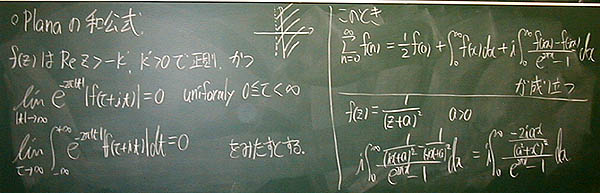 ○Planaの和公式.
f(z)は Re z > -k', k'>0 で正則, かつ
lim_{|t|→∞} e^{-2π|t|} |f(τ+it)| = 0 uniformly 0≦τ<∞
lim_{τ→∞} ∫_{-∞}^{+∞} e^{-2π|t|} |f(τ+it)| dt = 0 をみたすとする.
このとき
∑_{n=0}^{∞} f(n) = 1/2 f(0) + ∫_0^∞ f(x)dx + i∫_0^∞ (f(ix)-f(-ix))/(e^{2πx}-1) dx
が成り立つ
f(z) = 1/(z+a)^2 a>0
i∫_0^∞ (1/(ix+a)^2 - 1/(-ix+a)^2)/(e^{2πx}-1) dx = i∫_0^∞ (-2iax/(a^2+x^2)^2)/(e^{2πx}-1) dx